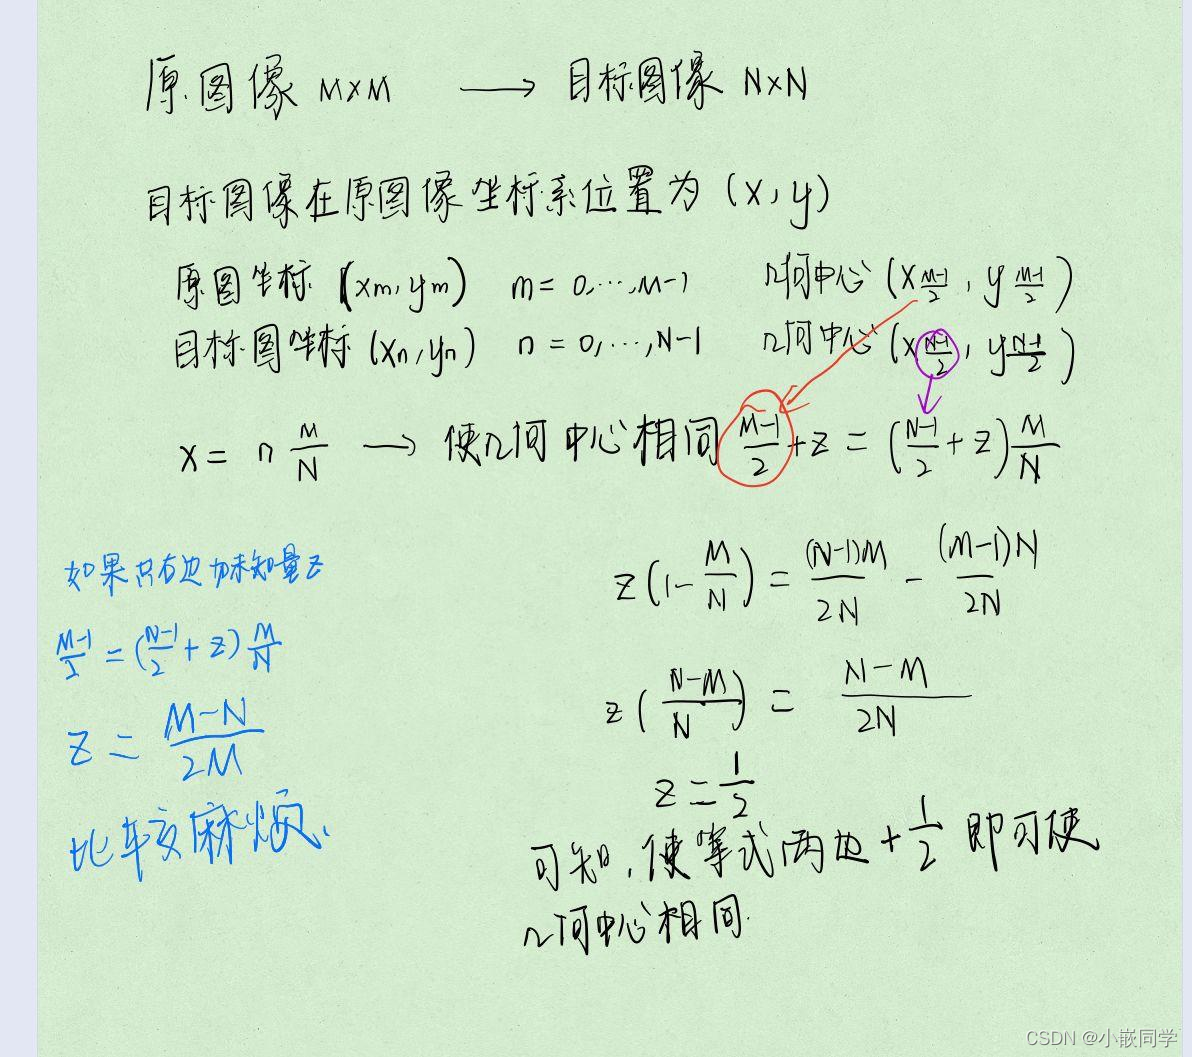 原图像 M×M ⟶ 目标图像 N×N
目标图像在原图像坐标系位置为 (x, y)
原图坐标 (xₘ, yₘ) m = 0, ..., M-1 几何中心 (x_{\frac{M-1}{2}}, y_{\frac{M-1}{2}})
目标图坐标 (xₙ, yₙ) n = 0, ..., N-1 几何中心 (x_{\frac{N-1}{2}}, y_{\frac{N-1}{2}})
x = n \frac{M}{N} ⟶ 使几何中心相同 \frac{M-1}{2} + z = (\frac{N-1}{2} + z) \frac{M}{N}
z (1 - \frac{M}{N}) = \frac{(N-1)M}{2N} - \frac{(M-1)N}{2N}
z (\frac{N-M}{N}) = \frac{N-M}{2N}
z = \frac{1}{2}
可知, 使等式两边 + \frac{1}{2} 即可使
几何中心相同.
如果只右边加未知量 z
\frac{M-1}{2} = (\frac{N-1}{2} + z) \frac{M}{N}
z = \frac{M-N}{2M}
比较麻烦.
CSDN @小嵌同学